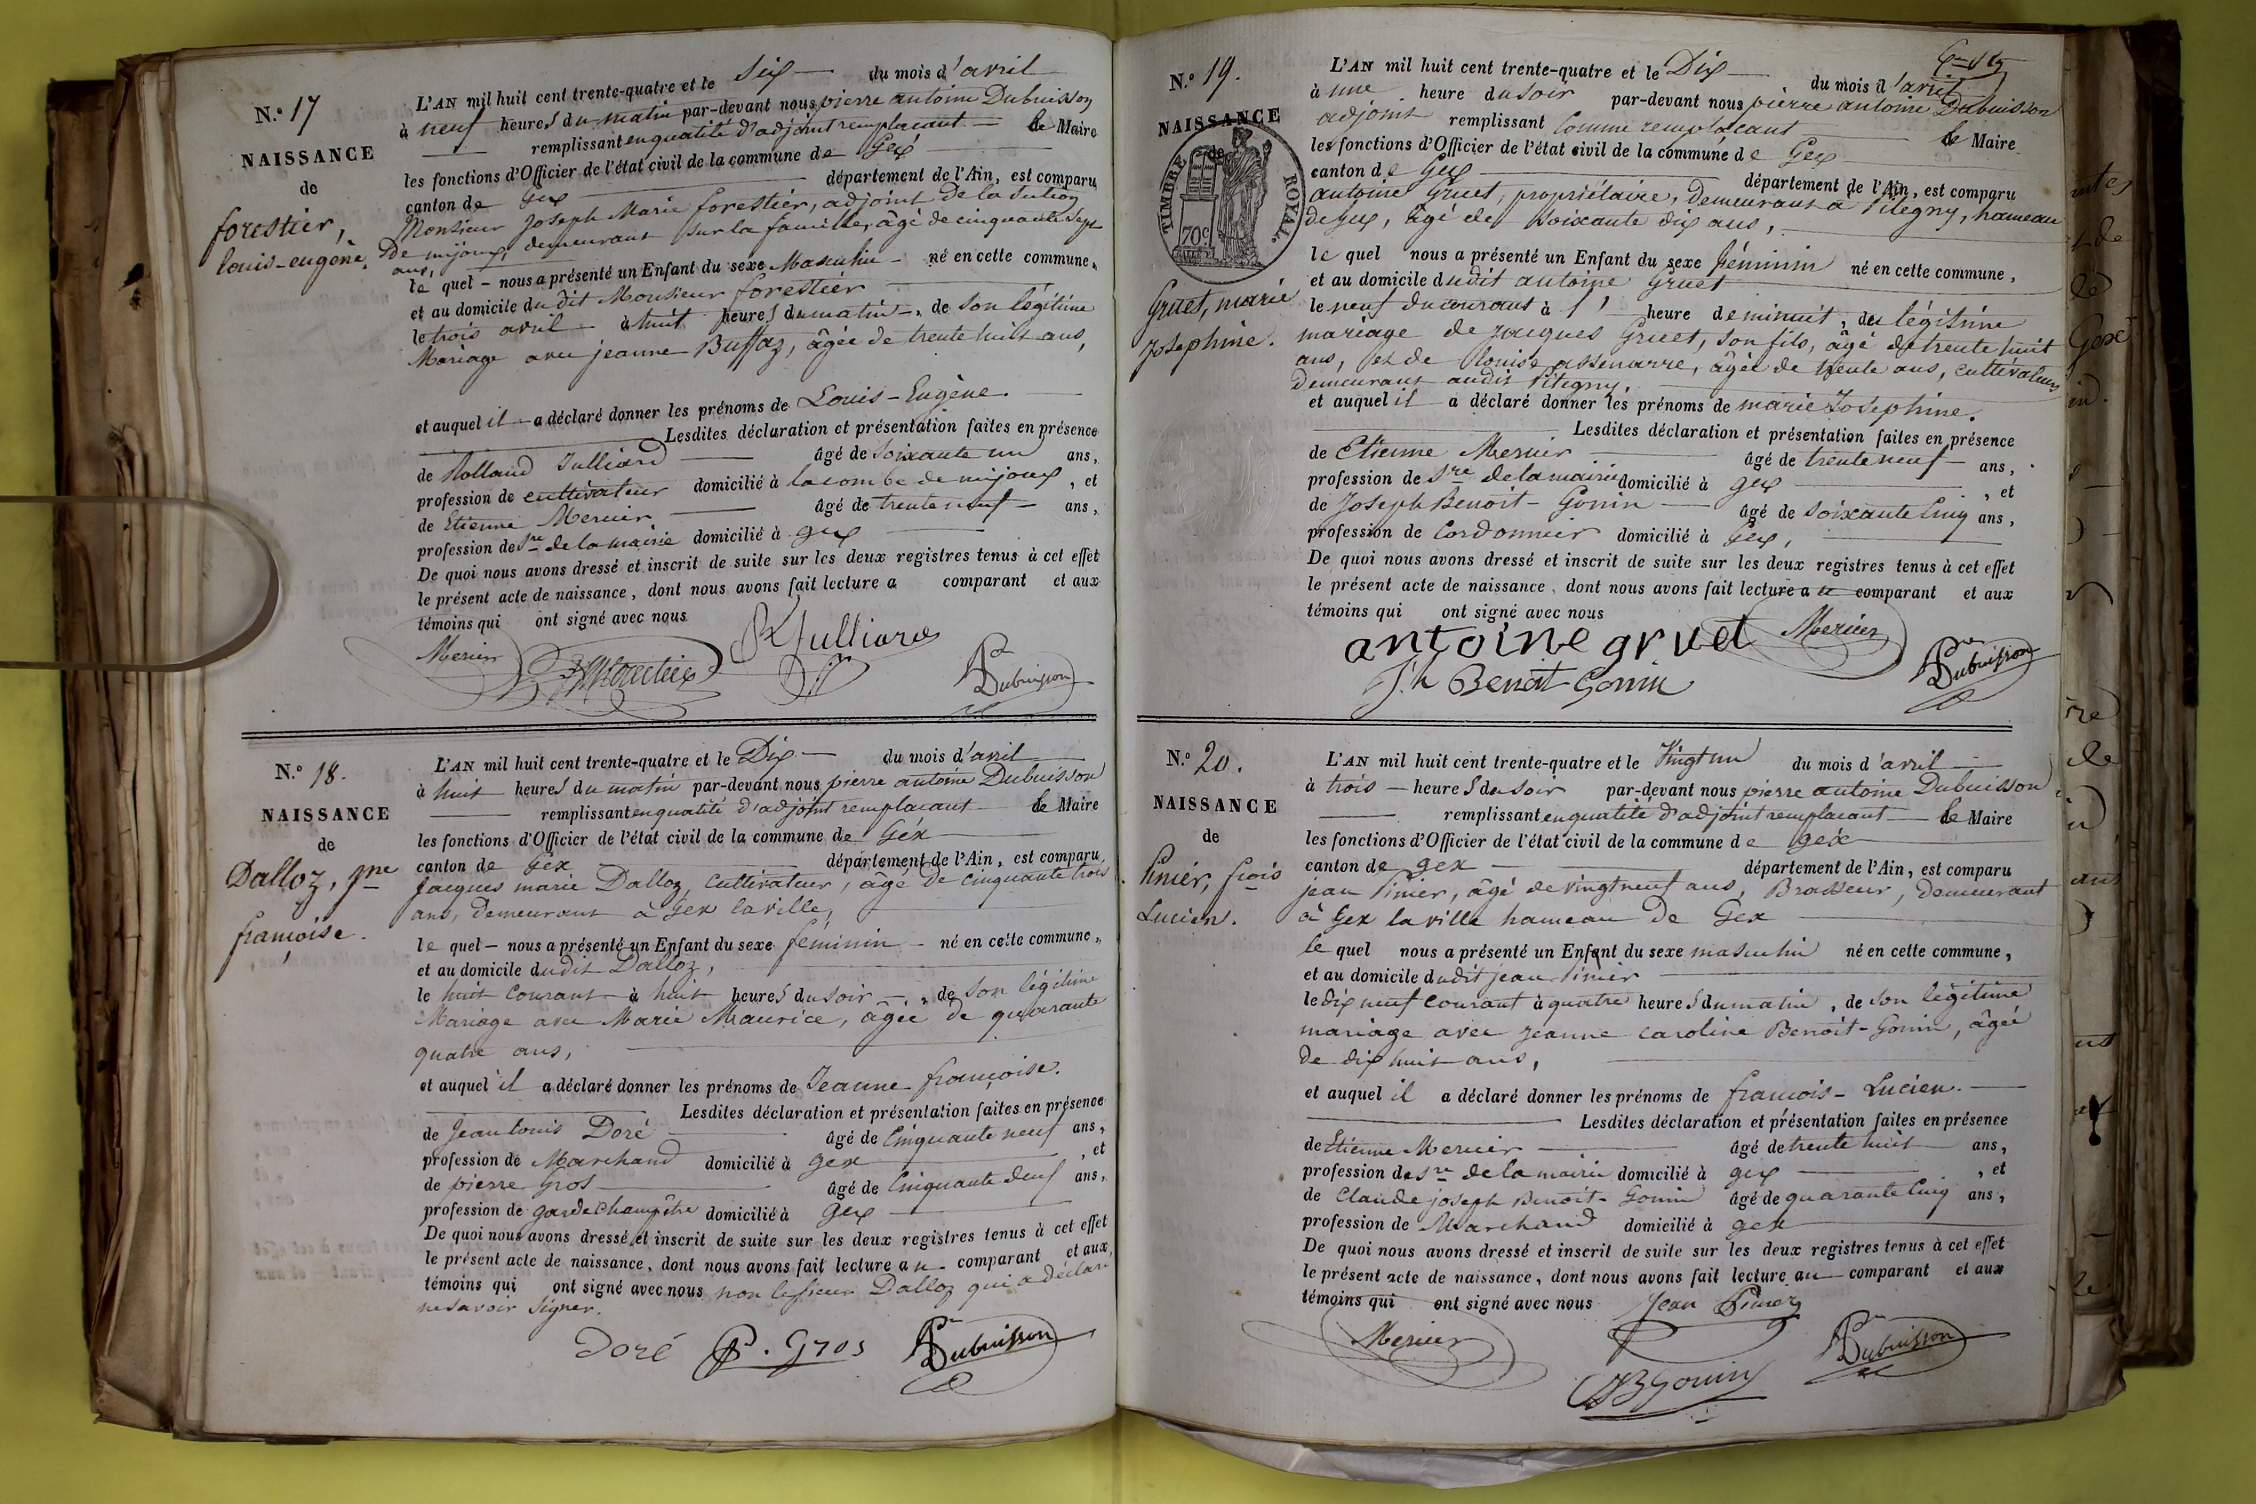 N.º 17
NAISSANCE
de
forestier,
louis-eugène.
L'AN mil huit cent trente-quatre et le Six du mois d'avril
à neuf heures du matin par-devant nous pierre antoine Dubuisson
remplissant en qualité d'adjoint remplacant le Maire
les fonctions d'Officier de l'état civil de la commune de Gex
canton de Gex département de l'Ain, est comparu
Monsieur Joseph Marie forestier, adjoint de la Section
De mijoux, demeurant sur la famille, âgé de cinquante sept
ans,
le quel nous a présenté un Enfant du sexe Masculin né en cette commune,
et au domicile du dit Monsieur forestier
le trois avril à huit heures du matin, de son légitime
Mariage avec jeanne Buffaz, âgée de trente huit ans,
et auquel il a déclaré donner les prénoms de Louis-Eugène.
Lesdites déclaration et présentation faites en présence
de Rolland Julliard âgé de soixante un ans,
profession de cultivateur domicilié à lacombe de mijoux, et
de Etienne Mercier âgé de trente neuf ans,
profession de Sre de la mairie domicilié à gex
De quoi nous avons dressé et inscrit de suite sur les deux registres tenus à cet effet
le présent acte de naissance, dont nous avons fait lecture a comparant et aux
témoins qui ont signé avec nous
Mercier Julliard
Dubuisson
N.º 18.
NAISSANCE
de
Dalloz, jne
françoise.
L'AN mil huit cent trente-quatre et le Dix du mois d'avril
à huit heures du matin par-devant nous pierre antoine Dubuisson
remplissant en qualité d'adjoint remplacant le Maire
les fonctions d'Officier de l'état civil de la commune de Gex
canton de Gex département de l'Ain, est comparu
Jacques marie Dalloz, cultivateur, âgé de cinquante trois
ans, demeurant à Gex la ville,
le quel nous a présenté un Enfant du sexe féminin né en cette commune,
et au domicile dudit Dalloz,
le huit courant à huit heures du soir, de son légitime
Mariage avec Marie Maurice, âgée de quarante
quatre ans,
et auquel il a déclaré donner les prénoms de Jeanne françoise.
Lesdites déclaration et présentation faites en présence
de Jean louis Doré âgé de Cinquante neuf ans,
profession de Marchand domicilié à gex, et
de pierre Gros âgé de Cinquante deux ans,
profession de garde champêtre domicilié à gex
De quoi nous avons dressé et inscrit de suite sur les deux registres tenus à cet effet
le présent acte de naissance, dont nous avons fait lecture au comparant et aux
témoins qui ont signé avec nous non le sieur Dalloz qui a déclaré
ne savoir signer.
Doré P. Gros Dubuisson
N.º 19.
NAISSANCE
de
TIMBRE ROYAL.
70c
Gruet, marie
Josephine.
L'AN mil huit cent trente-quatre et le Dix du mois d'avril
à une heure du soir par-devant nous pierre antoine Dubuisson
adjoint remplissant comme remplacant le Maire
les fonctions d'Officier de l'état civil de la commune de Gex
canton de Gex département de l'Ain, est comparu
antoine Gruet, propriétaire, demeurant à Pitegny, hameau
de Gex, âgé de soixante dix ans,
le quel nous a présenté un Enfant du sexe féminin né en cette commune,
et au domicile dudit antoine Gruet
le neuf du courant à 1 heure de minuit, du légitime
mariage de jacques Gruet, son fils, âgé de trente huit
ans, et de louise assenarre, âgée de trente ans, cultivateurs
demeurant audit Pitegny.
et auquel il a déclaré donner les prénoms de marie Josephine.
Lesdites déclaration et présentation faites en présence
de Etienne Mercier âgé de trente neuf ans,
profession de Sre de la mairie domicilié à gex, et
de Joseph Benoit-Gonin âgé de soixante Cinq ans,
profession de Cordonnier domicilié à Gex,
De quoi nous avons dressé et inscrit de suite sur les deux registres tenus à cet effet
le présent acte de naissance, dont nous avons fait lecture au comparant et aux
témoins qui ont signé avec nous
antoine gruet Mercier
J.h Benoit Gonin Dubuisson
N.º 20.
NAISSANCE
de
Pinier, frois
Lucien.
L'AN mil huit cent trente-quatre et le Vingt un du mois d'avril
à trois heures du soir par-devant nous pierre antoine Dubuisson
remplissant en qualité d'adjoint remplacant le Maire
les fonctions d'Officier de l'état civil de la commune de gex
canton de gex département de l'Ain, est comparu
jean Pinier, âgé de vingt neuf ans, Brasseur, demeurant
à Gex la ville hameau de Gex
le quel nous a présenté un Enfant du sexe masculin né en cette commune,
et au domicile dudit jean Pinier
le dix neuf courant à quatre heures du matin, de son légitime
mariage avec jeanne caroline Benoit-Gonin, âgée
de dix huit ans,
et auquel il a déclaré donner les prénoms de françois-Lucien.
Lesdites déclaration et présentation faites en présence
de Etienne Mercier âgé de trente huit ans,
profession de Sre de la mairie domicilié à gex, et
de Claude joseph Benoit-Gonin âgé de quarante Cinq ans,
profession de Marchand domicilié à gex
De quoi nous avons dressé et inscrit de suite sur les deux registres tenus à cet effet
le présent acte de naissance, dont nous avons fait lecture au comparant et aux
témoins qui ont signé avec nous Jean Pinier
Mercier Dubuisson
CJBGonin